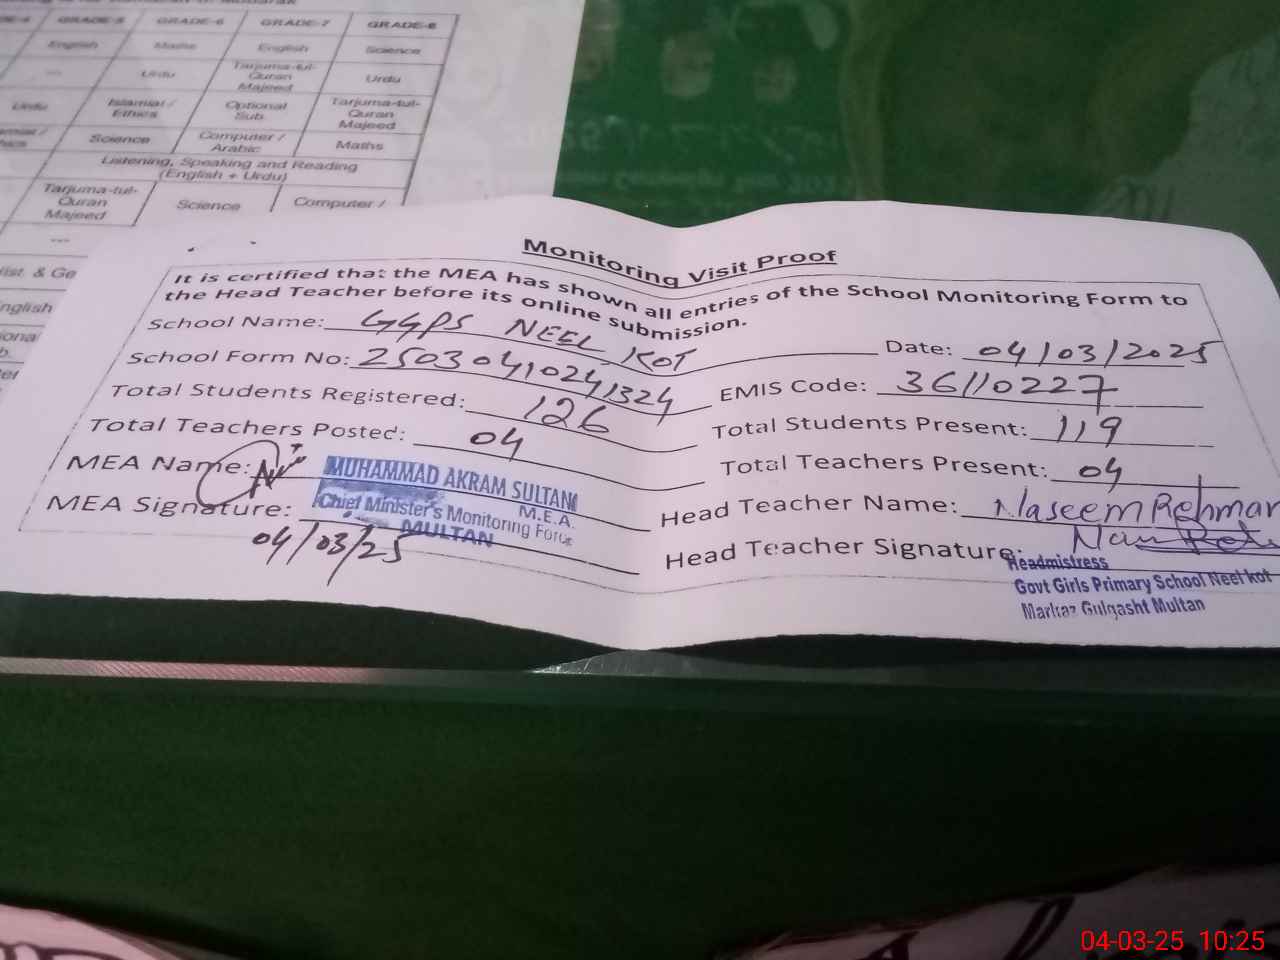 GRADE-5 GRADE-6 GRADE-7 GRADE-8
English Maths English Science
--- Urdu Tarjuma-tul-Quran Majeed Urdu
Urdu Islamiat / Ethics Optional Sub. Tarjuma-tul-Quran Majeed
Science Computer / Arabic Maths
Listening, Speaking and Reading
(English + Urdu)
Tarjuma-tul-Quran Majeed Science Computer /
---
Monitoring Visit Proof
It is certified that the MEA has shown all entries of the School Monitoring Form to
the Head Teacher before its online submission.
School Name: GGPS NEEL KOT Date: 04/03/2025
School Form No: 25030410241324 EMIS Code: 36110227
Total Students Registered: 126 Total Students Present: 119
Total Teachers Posted: 04 Total Teachers Present: 04
MEA Name: Head Teacher Name: Naseem Rehman
MEA Signature: Head Teacher Signature:
MUHAMMAD AKRAM SULTANI
M.E.A.
Chief Minister's Monitoring Force
MULTAN
04/03/25
Headmistress
Govt Girls Primary School Neel kot
Markaz Gulgasht Multan
04-03-25 10:25